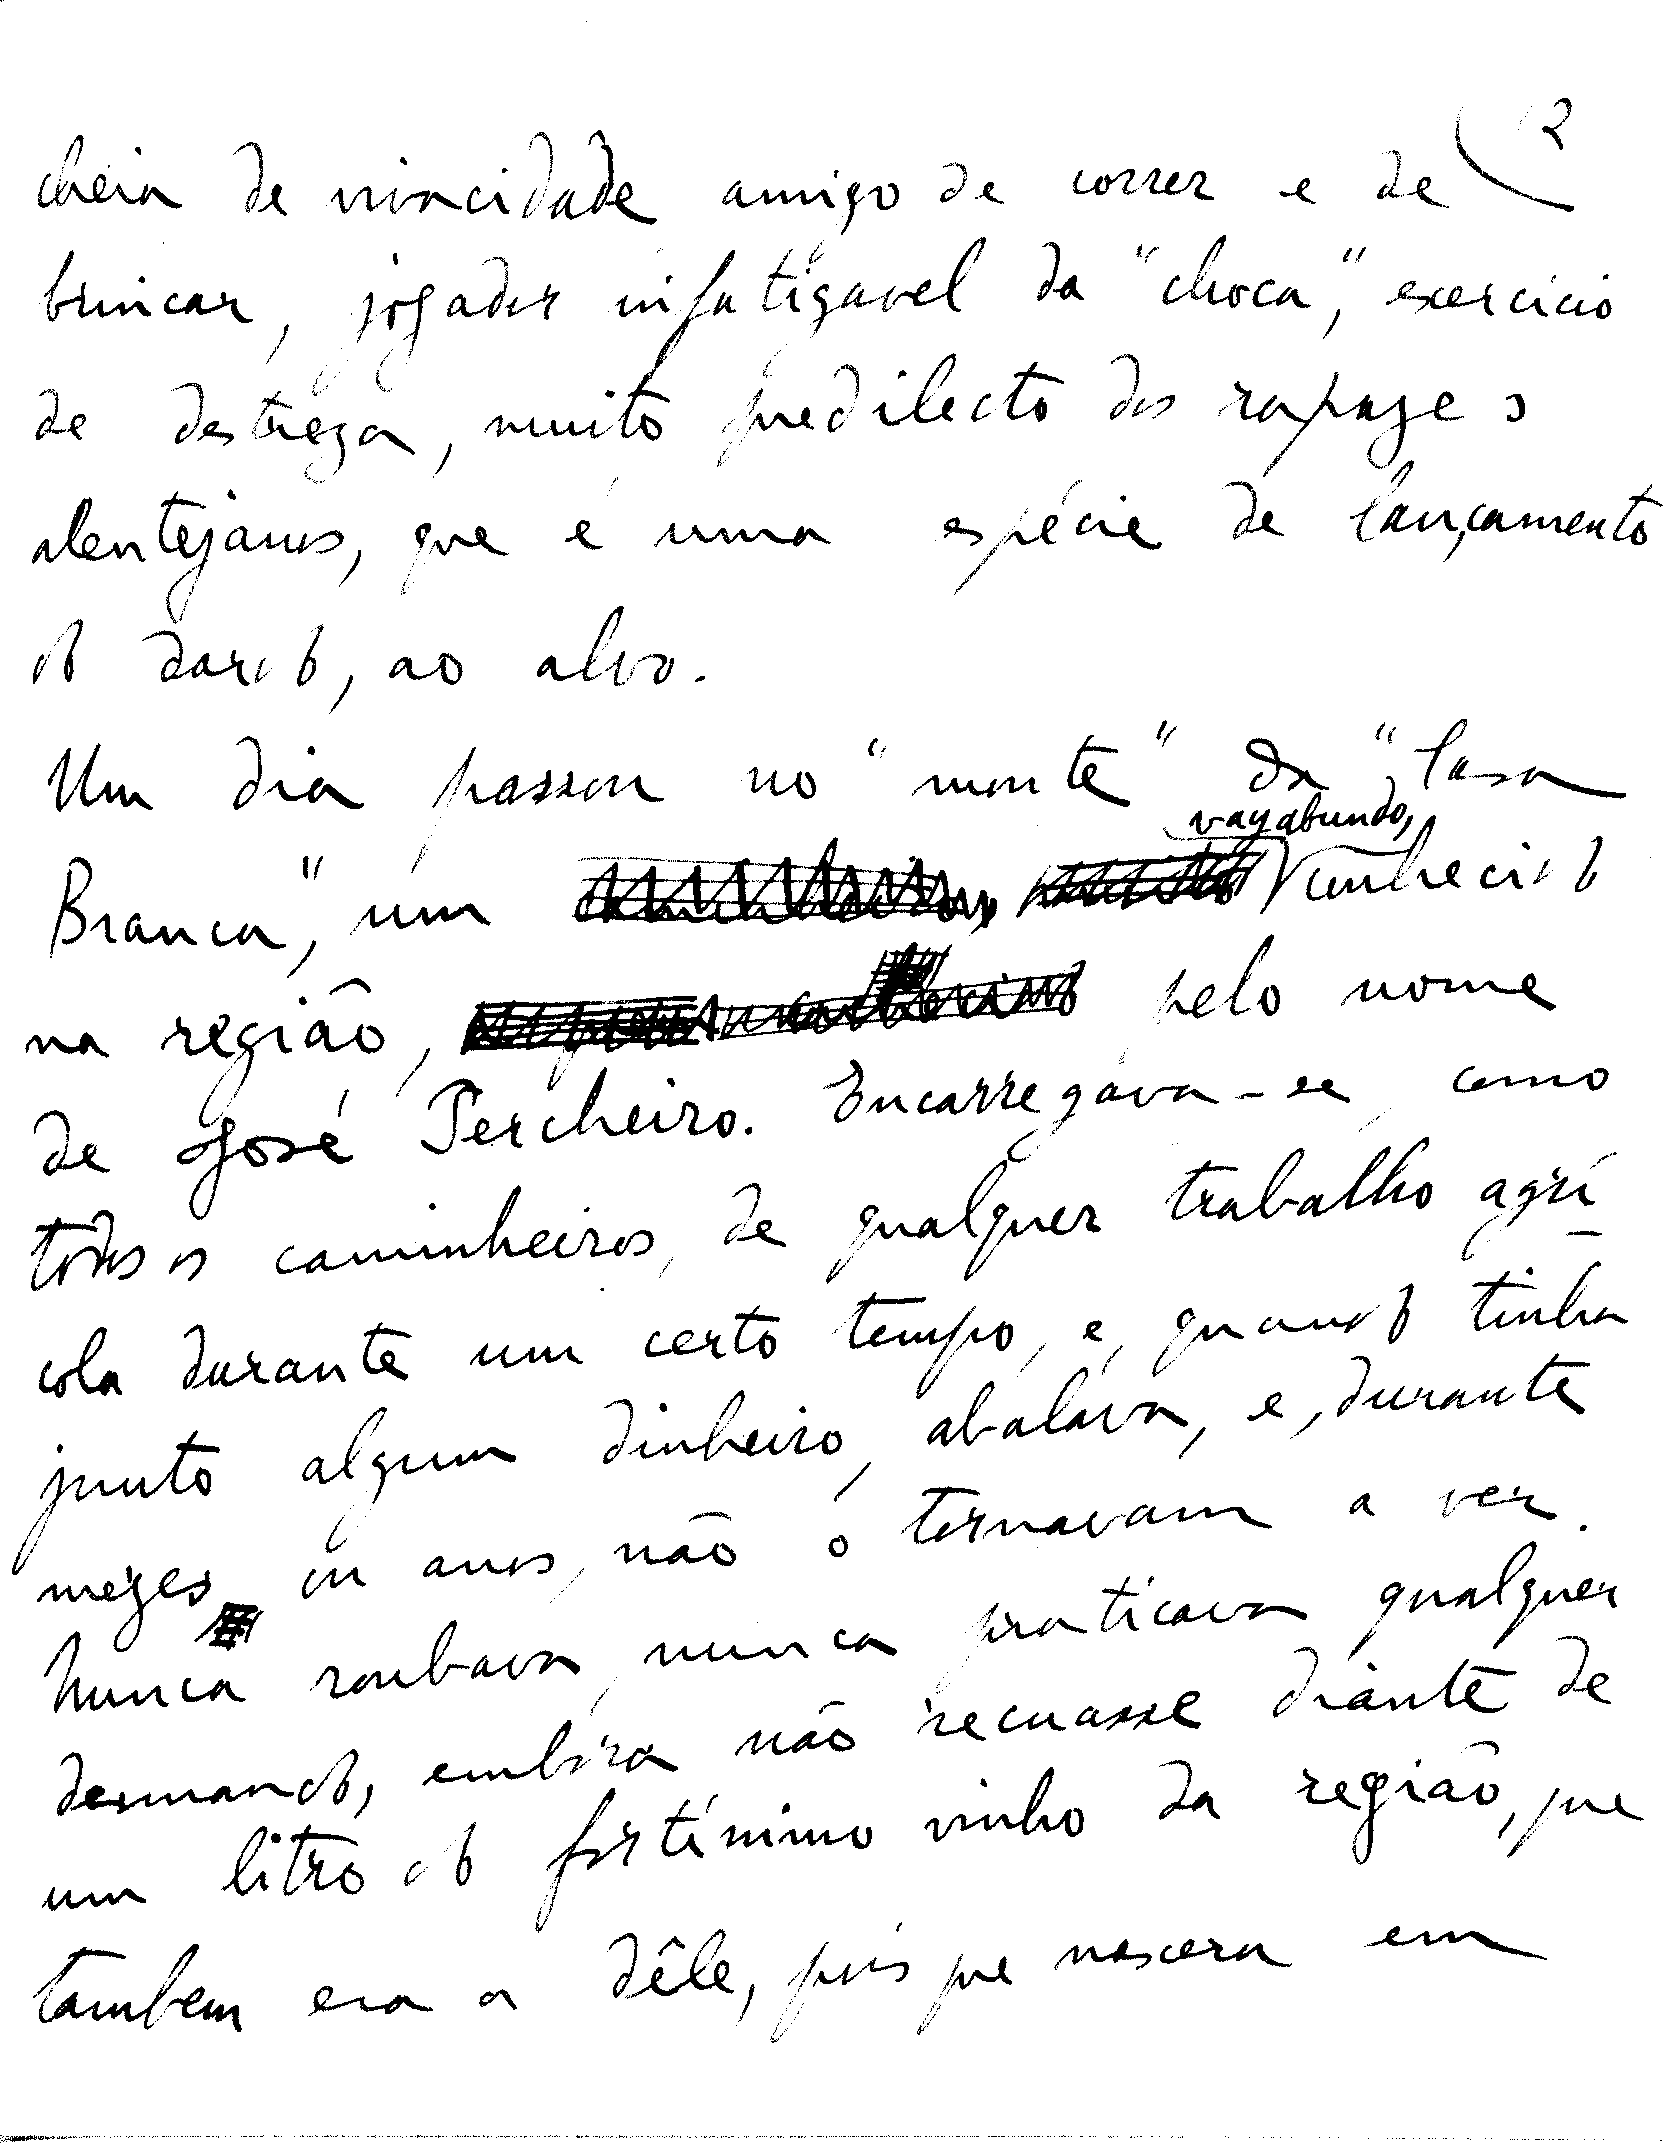 2
cheia de vivacidade amigo de correr e de
brincar, jogador infatigavel da "choca", exercicio
de destreza, muito predilecto dos rapazes
alentejanos, que é uma espécie de lançamento
do dardo, ao alvo.
Um dia passou no "monte" da "Casa
vagabundo,
Branca", um conhecido
na região, pelo nome
de José Percheiro. Encarregava-se, como
todos os caminheiros, de qualquer trabalho agrí
cola durante um certo tempo, e, quando tinha
junto algum dinheiro, abalava, e, durante
mezes ou anos, não o tornavam a ver.
Nunca roubava, nunca praticava qualquer
desmando, embora não recuasse diante de
um litro do fortíssimo vinho da região, que
tambem era a dêle, pois que nascera em